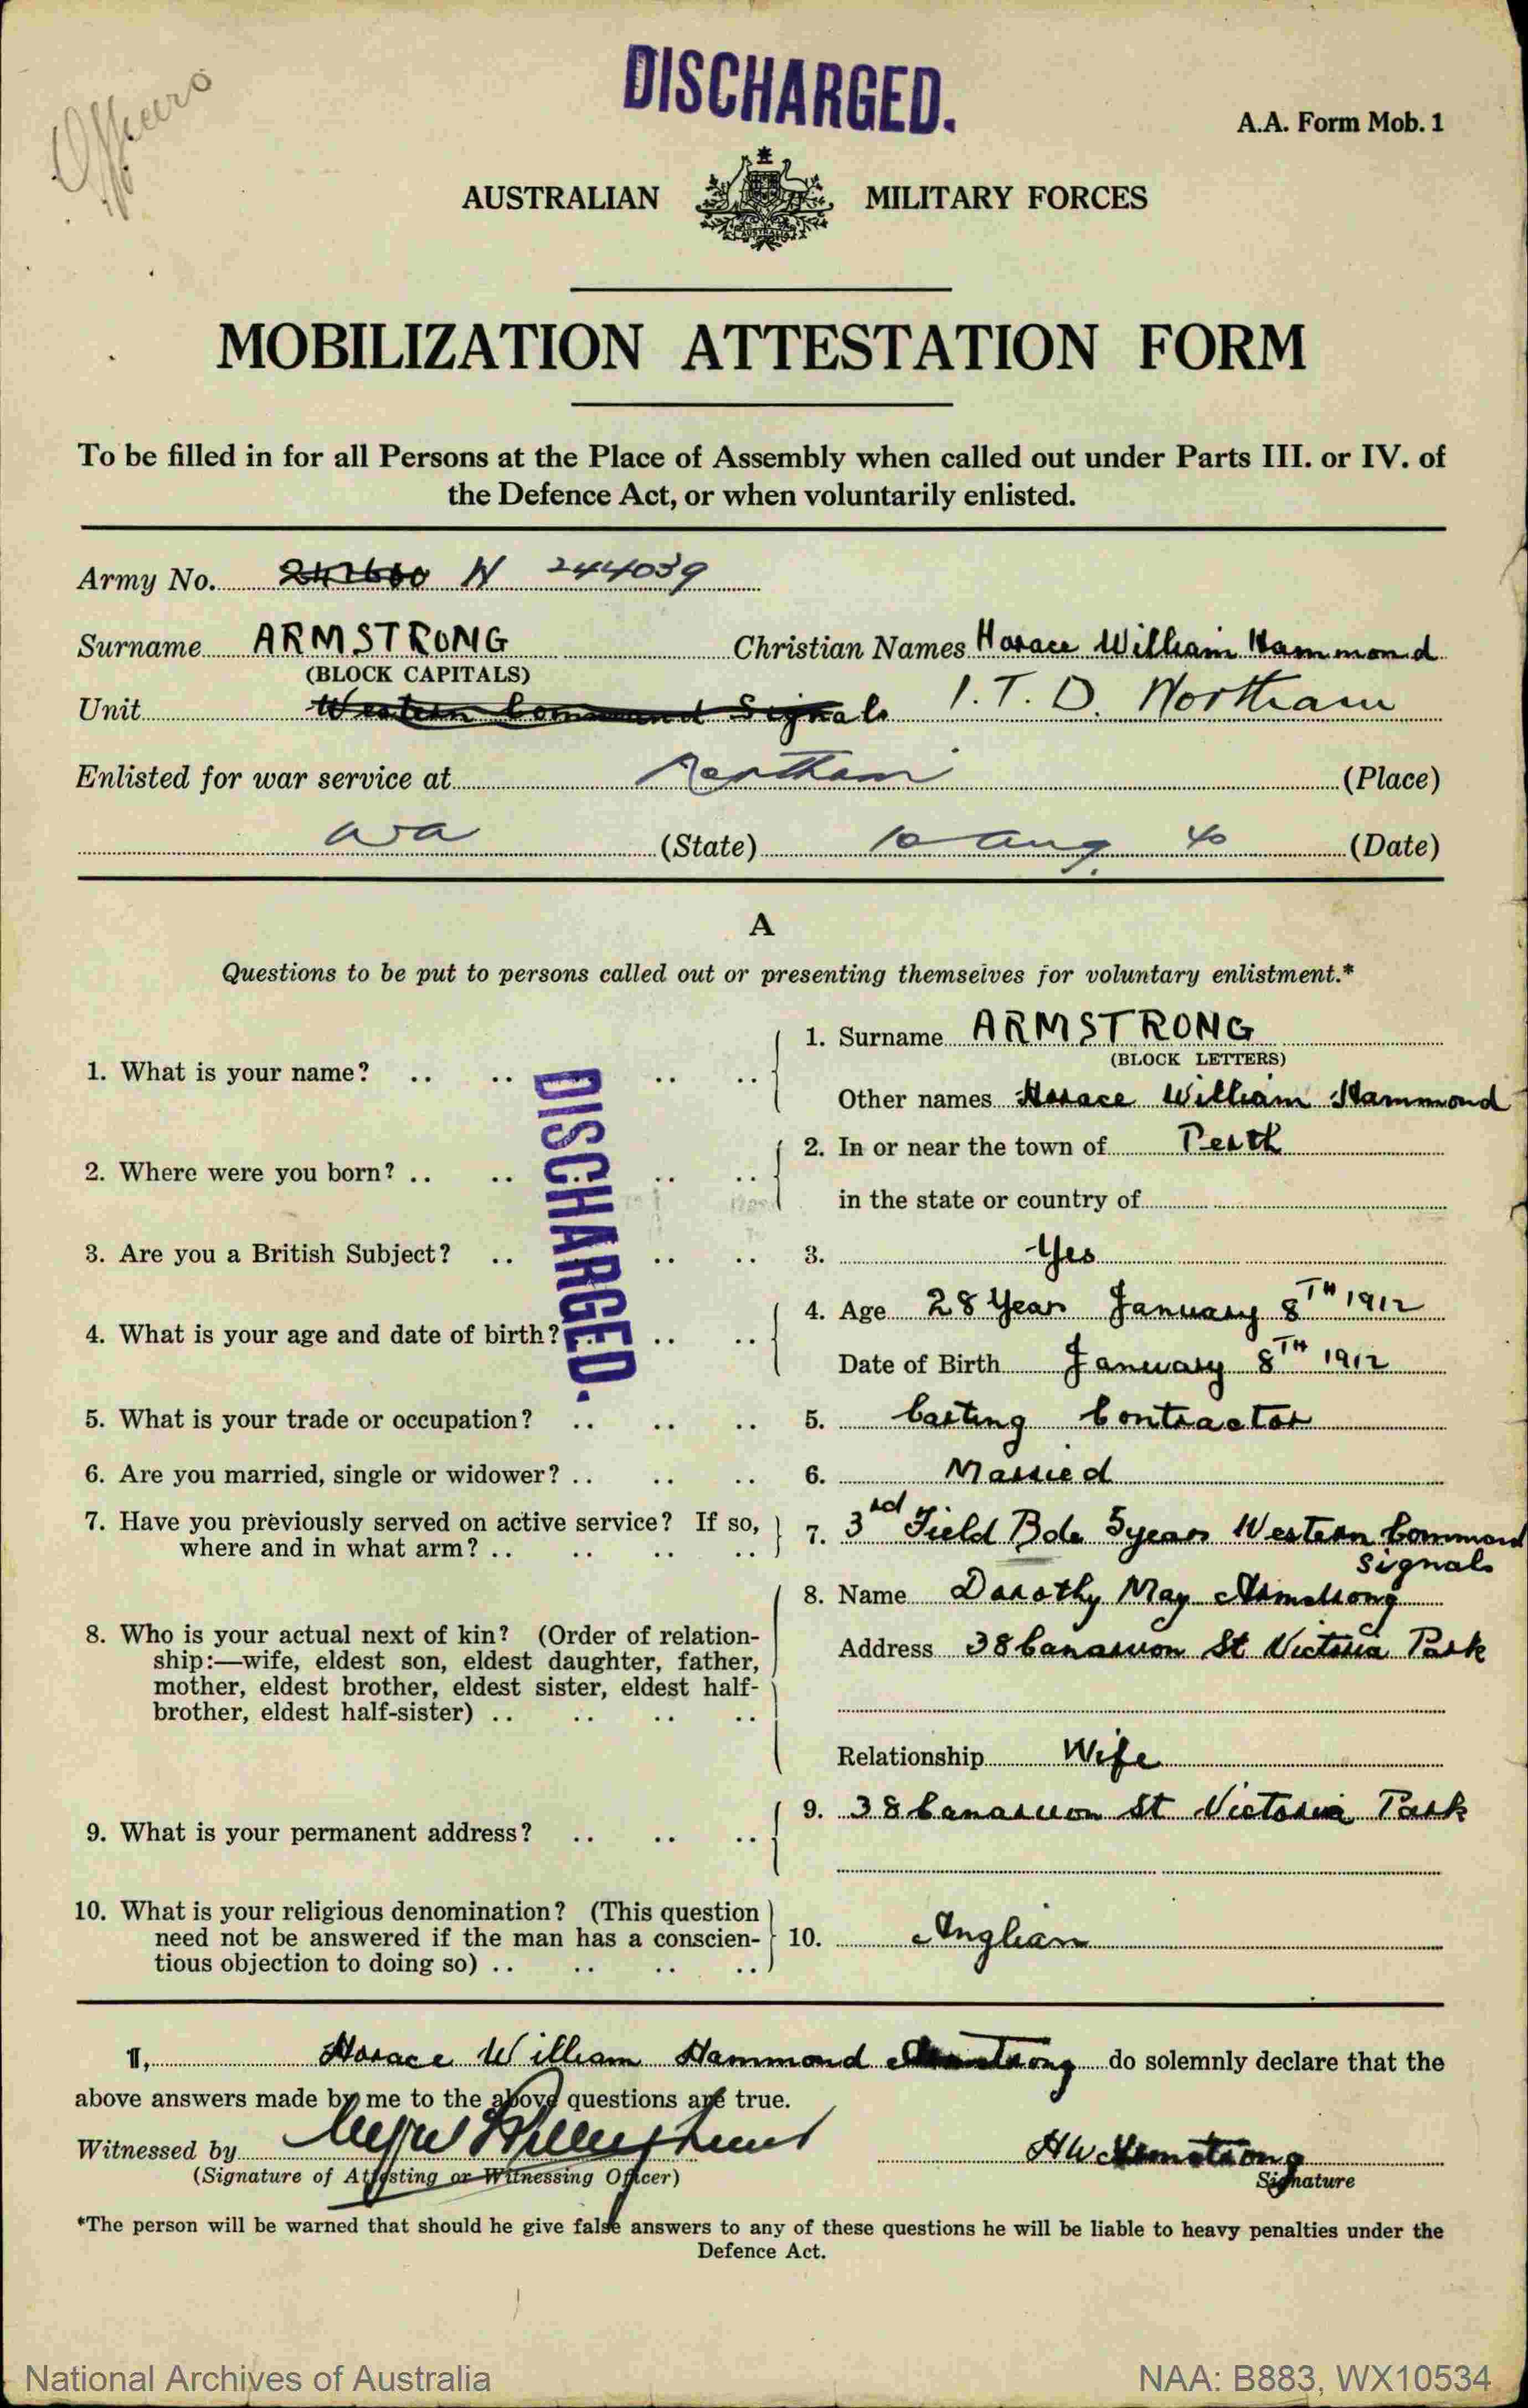 Officers
DISCHARGED.
A.A. Form Mob. 1
AUSTRALIAN MILITARY FORCES
MOBILIZATION ATTESTATION FORM
To be filled in for all Persons at the Place of Assembly when called out under Parts III. or IV. of
the Defence Act, or when voluntarily enlisted.
Army No. W 244039
Surname ARMSTRONG Christian Names Horace William Hammond
(BLOCK CAPITALS)
Unit Western Command Signals I.T.D. Northam
Enlisted for war service at Northam (Place)
WA (State) 10 Aug 40 (Date)
A
Questions to be put to persons called out or presenting themselves for voluntary enlistment.*
1. What is your name? .. .. .. .. 1. Surname ARMSTRONG
(BLOCK LETTERS)
Other names Horace William Hammond
2. Where were you born? .. .. .. .. 2. In or near the town of Perth
in the state or country of
3. Are you a British Subject? .. .. .. 3. Yes
4. What is your age and date of birth? .. .. 4. Age 28 Years January 8TH 1912
Date of Birth January 8TH 1912
DISCHARGED.
5. What is your trade or occupation? .. .. .. 5. Carting Contractor
6. Are you married, single or widower? .. .. .. 6. Married
7. Have you previously served on active service? If so,
where and in what arm? .. .. .. .. 7. 3rd Field Bde 5 years Western Command
Signals
8. Who is your actual next of kin? (Order of relation-
ship:—wife, eldest son, eldest daughter, father,
mother, eldest brother, eldest sister, eldest half-
brother, eldest half-sister) .. .. .. ..
8. Name Dorothy May Armstrong
Address 38 Canarvon St Victoria Park
Relationship Wife
9. What is your permanent address? .. .. .. 9. 38 Canarvon St Victoria Park
10. What is your religious denomination? (This question
need not be answered if the man has a conscien-
tious objection to doing so) .. .. .. .. 10. Anglian
I, Horace William Hammond Armstrong do solemnly declare that the
above answers made by me to the above questions are true.
Witnessed by HW Armstrong
(Signature of Attesting or Witnessing Officer) Signature
*The person will be warned that should he give false answers to any of these questions he will be liable to heavy penalties under the
Defence Act.
National Archives of Australia NAA: B883, WX10534